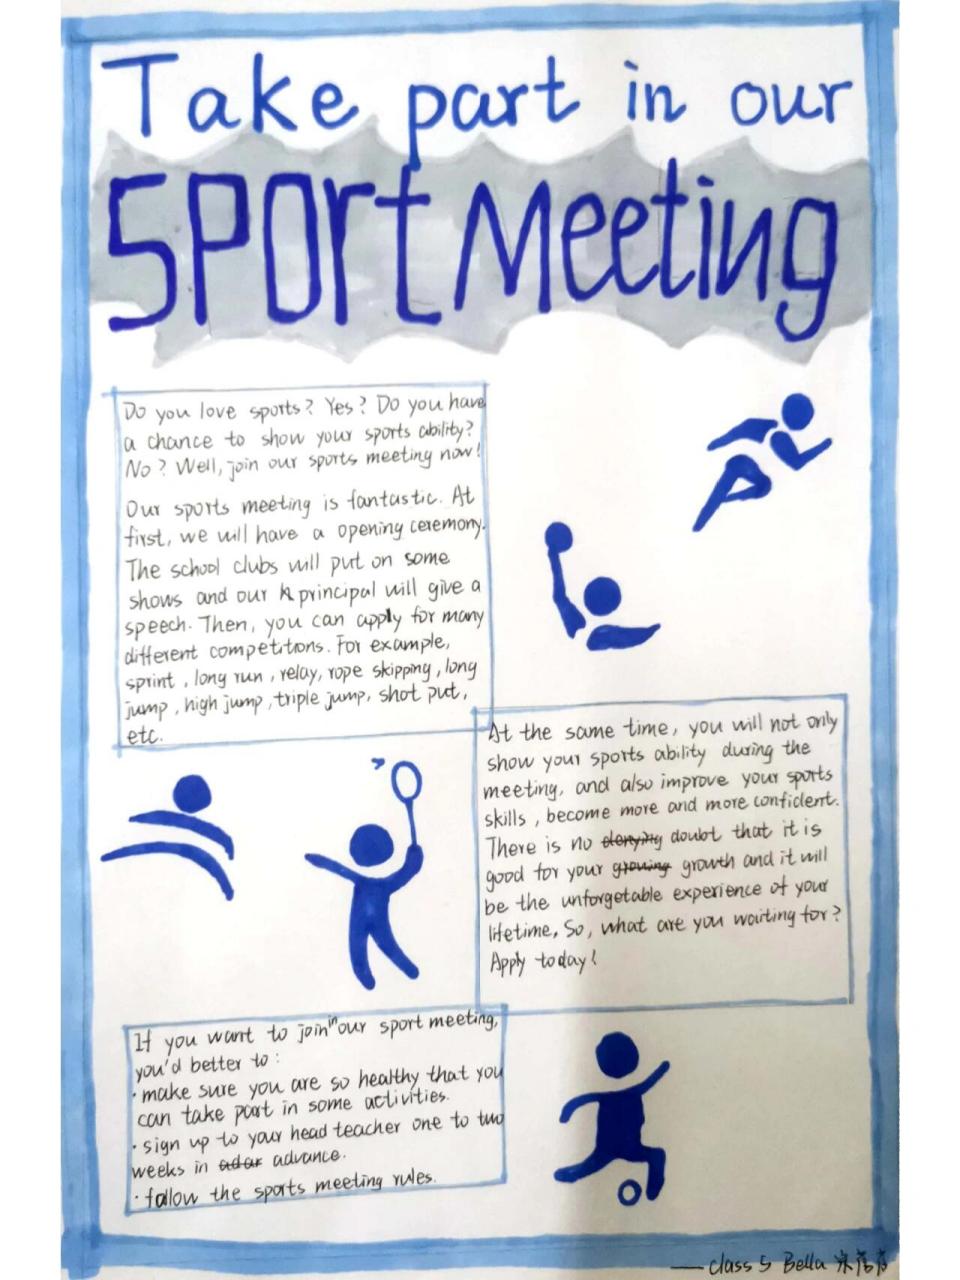 Take part in our
SPort Meeting
Do you love sports? Yes? Do you have
a chance to show your sports ability?
No? Well, join our sports meeting now!
Our sports meeting is fantastic. At
first, we will have a opening ceremony.
The school clubs will put on some
shows and our principal will give a
speech. Then, you can apply for many
different competitions. For example,
sprint, long run, relay, rope skipping, long
jump, high jump, triple jump, shot put,
etc.
At the same time, you will not only
show your sports ability during the
meeting, and also improve your sports
skills, become more and more confident.
There is no denying doubt that it is
good for your growing growth and it will
be the unforgetable experience of your
lifetime. So, what are you waiting for?
Apply today!
If you want to join in our sport meeting,
you'd better to:
· make sure you are so healthy that you
can take part in some activities.
· sign up to your head teacher one to two
weeks in advance.
· follow the sports meeting rules.
—— class 5 Bella